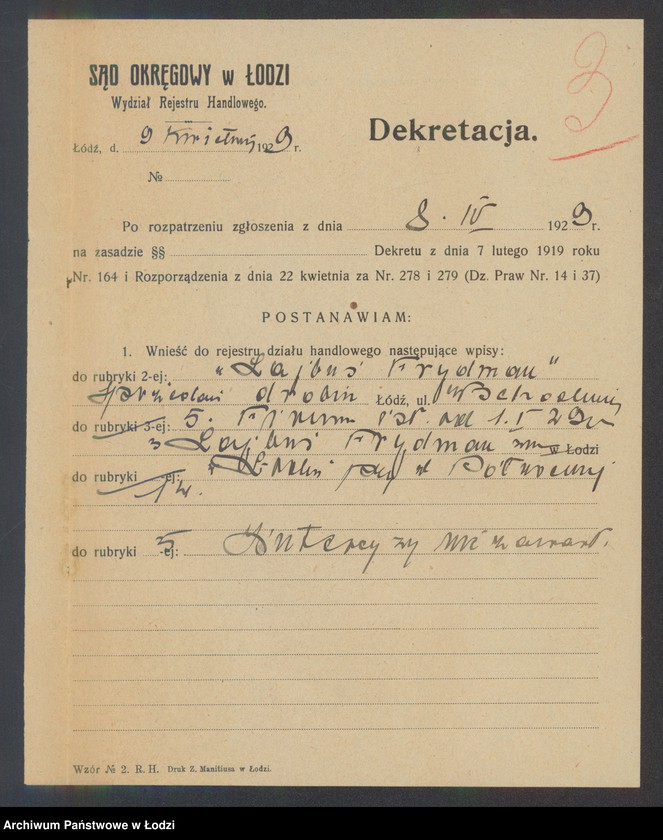 SĄD OKRĘGOWY w ŁODZI
Wydział Rejestru Handlowego.
3
Dekretacja.
Łódź, d. 9 Kwietnia 1929 r.
№
Po rozpatrzeniu zgłoszenia z dnia 8. IV 1929 r.
na zasadzie §§ Dekretu z dnia 7 lutego 1919 roku
Nr. 164 i Rozporządzenia z dnia 22 kwietnia za Nr. 278 i 279 (Dz. Praw Nr. 14 i 37)
POSTANAWIAM:
1. Wnieść do rejestru działu handlowego następujące wpisy:
do rubryki 2-ej: "Lajbuś Frydman"
drobiu Łódź, ul. Wschodniej
do rubryki 3-ej: 5. Firma ist. od 1.I 29 r
3 Lajbuś Frydman w Łodzi
do rubryki -ej: Północnej
do rubryki 5-ej: Intercyzy nie zawarł.
Wzór № 2. R. H. Druk Z. Manitiusa w Łodzi.
Archiwum Państwowe w Łodzi